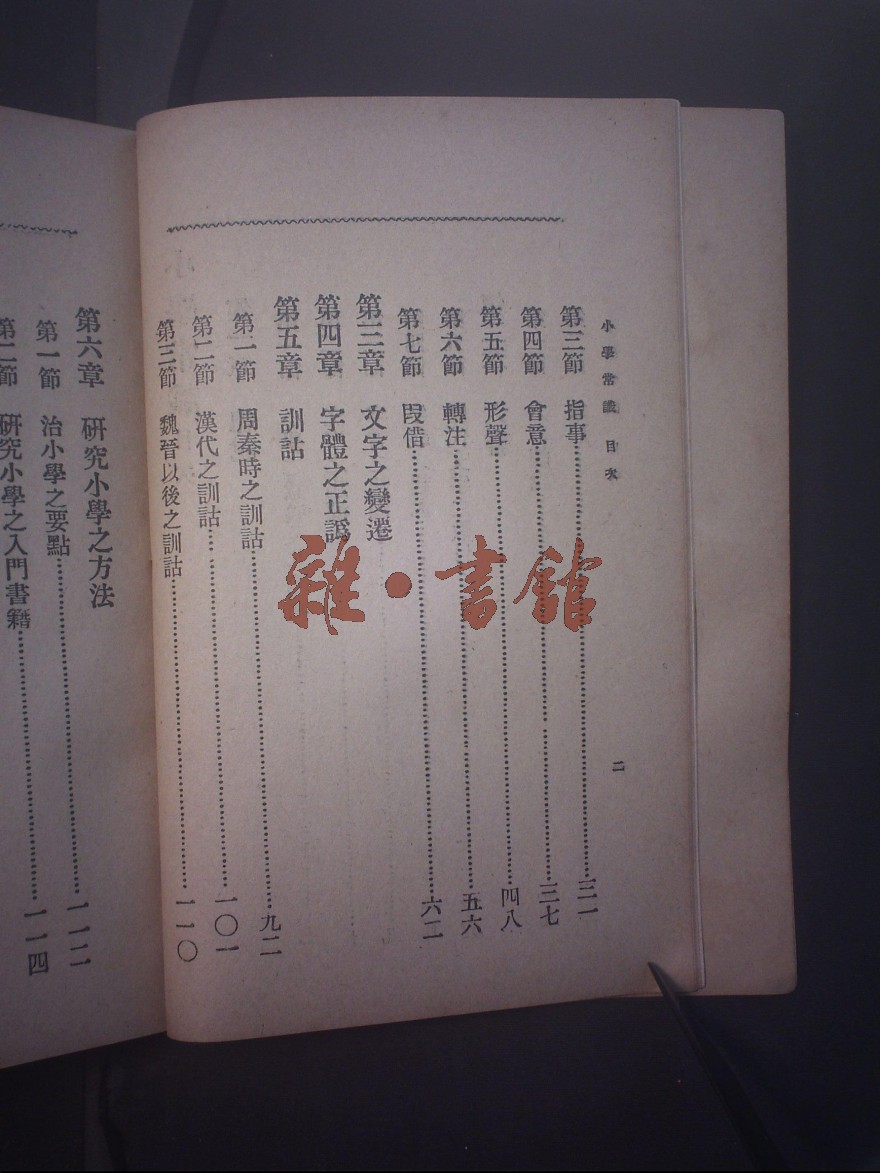 小學常識 目次
二
第三節 指事 三一
第四節 會意 三七
第五節 形聲 四八
第六節 轉注 五六
第七節 叚借 六二
第三章 文字之變遷
第四章 字體之正譌
第五章 訓詁
第一節 周秦時之訓詁 九二
第二節 漢代之訓詁 一〇一
第三節 魏晉以後之訓詁 一一〇
第六章 研究小學之方法
第一節 治小學之要點 一一二
第二節 研究小學之入門書籍 一一四
雜·書館